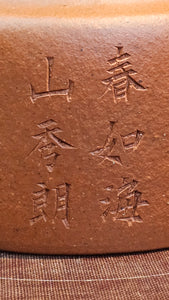 春如海
山秀朗